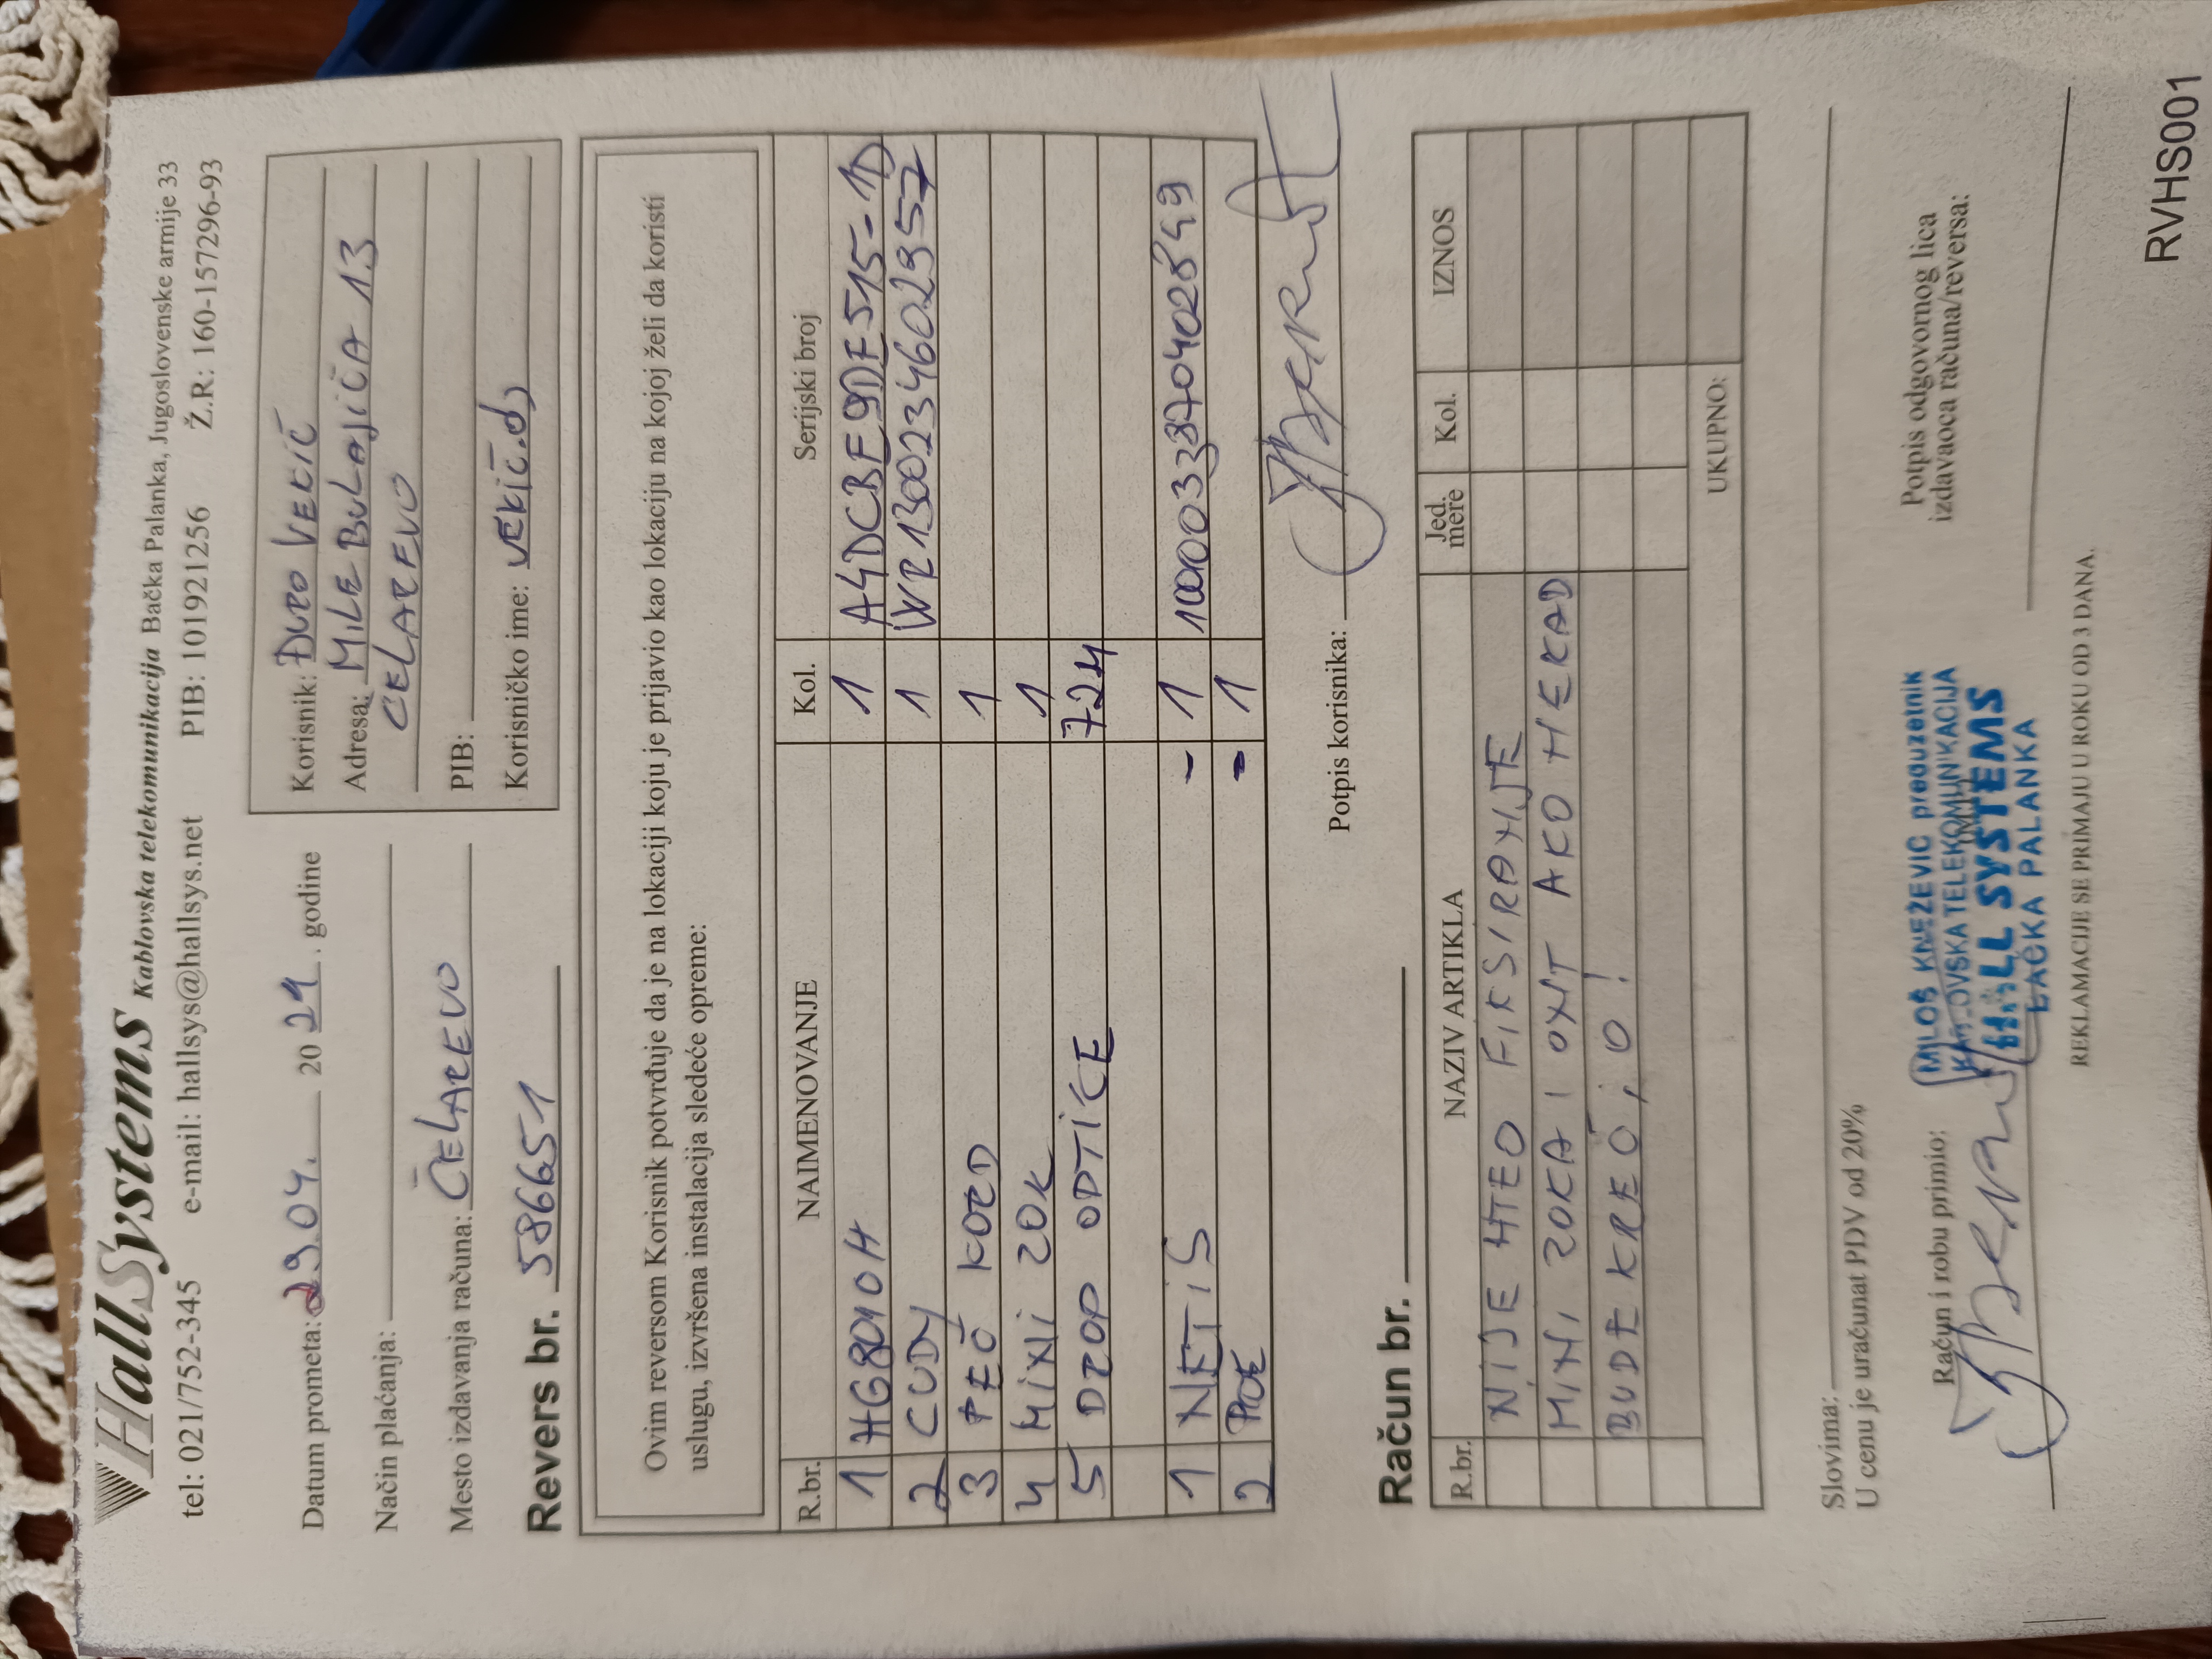 HallSystems Kablovska telekomunikacija Bačka Palanka, Jugoslovenske armije 33
tel: 021/752-345 e-mail: hallsys@hallsys.net PIB: 101921256 Ž.R: 160-157296-93
Datum prometa: 29.04. 2024. godine
Način plaćanja:
Mesto izdavanja računa: ČELAREVO
Revers br. 586651
Korisnik: ĐURO VEKIĆ
Adresa: MILE BULAJIĆA 13
ČELAREVO
PIB:
Korisničko ime: VEKIĆ.DJ
Ovim reversom Korisnik potvrđuje da je na lokaciji koju je prijavio kao lokaciju na kojoj želi da koristi
uslugu, izvršena instalacija sledeće opreme:
R.br. NAIMENOVANJE Kol. Serijski broj
1 HG8010H 1 A4DCBE9DF515-1D
2 CUDY 1 WR1300234602957
3 PEČ KORD 1
4 MINI ZOK 1
5 DROP OPTIKE 724
1 NETIS - 1
2 POE - 1
Potpis korisnika:
Račun br.
R.br. NAZIV ARTIKLA Jed. mere Kol. IZNOS
NIJE HTEO FIKSIRANJE
MINI ZOKA I ONT AKO NEKAD
BUDE KREČIO!
UKUPNO:
Slovima:
U cenu je uračunat PDV od 20%
Račun i robu primio:
MILOŠ KNEŽEVIĆ preduzetnik
KABLOVSKA TELEKOMUNIKACIJA
HALL SYSTEMS
BAČKA PALANKA
Potpis odgovornog lica
izdavaoca računa/reversa:
REKLAMACIJE SE PRIMAJU U ROKU OD 3 DANA.
RVHS001